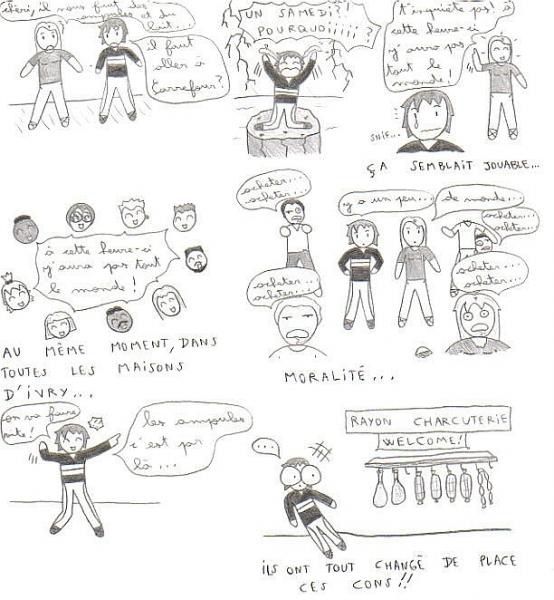 chéri, il nous faut des
ampoules et du
lait...
il faut
aller à
Carrefour?
UN SAMEDI?!
POURQUOIiiiii?
t'inquiète pas! à
cette heure-ci
y'aura pas
tout le
monde!
SNIF...
ÇA SEMBLAIT JOUABLE...
à cette heure-ci
y'aura pas tout
le monde!
AU MÊME MOMENT, DANS
TOUTES LES MAISONS
D'IVRY...
acheter...
acheter...
y a un peu...
de monde...
acheter...
acheter...
acheter...
acheter...
acheter...
acheter...
MORALITÉ...
on va faire
vite!
les ampoules
c'est par
là...
...
RAYON CHARCUTERIE
WELCOME!
ILS ONT TOUT CHANGÉ DE PLACE
CES CONS!!